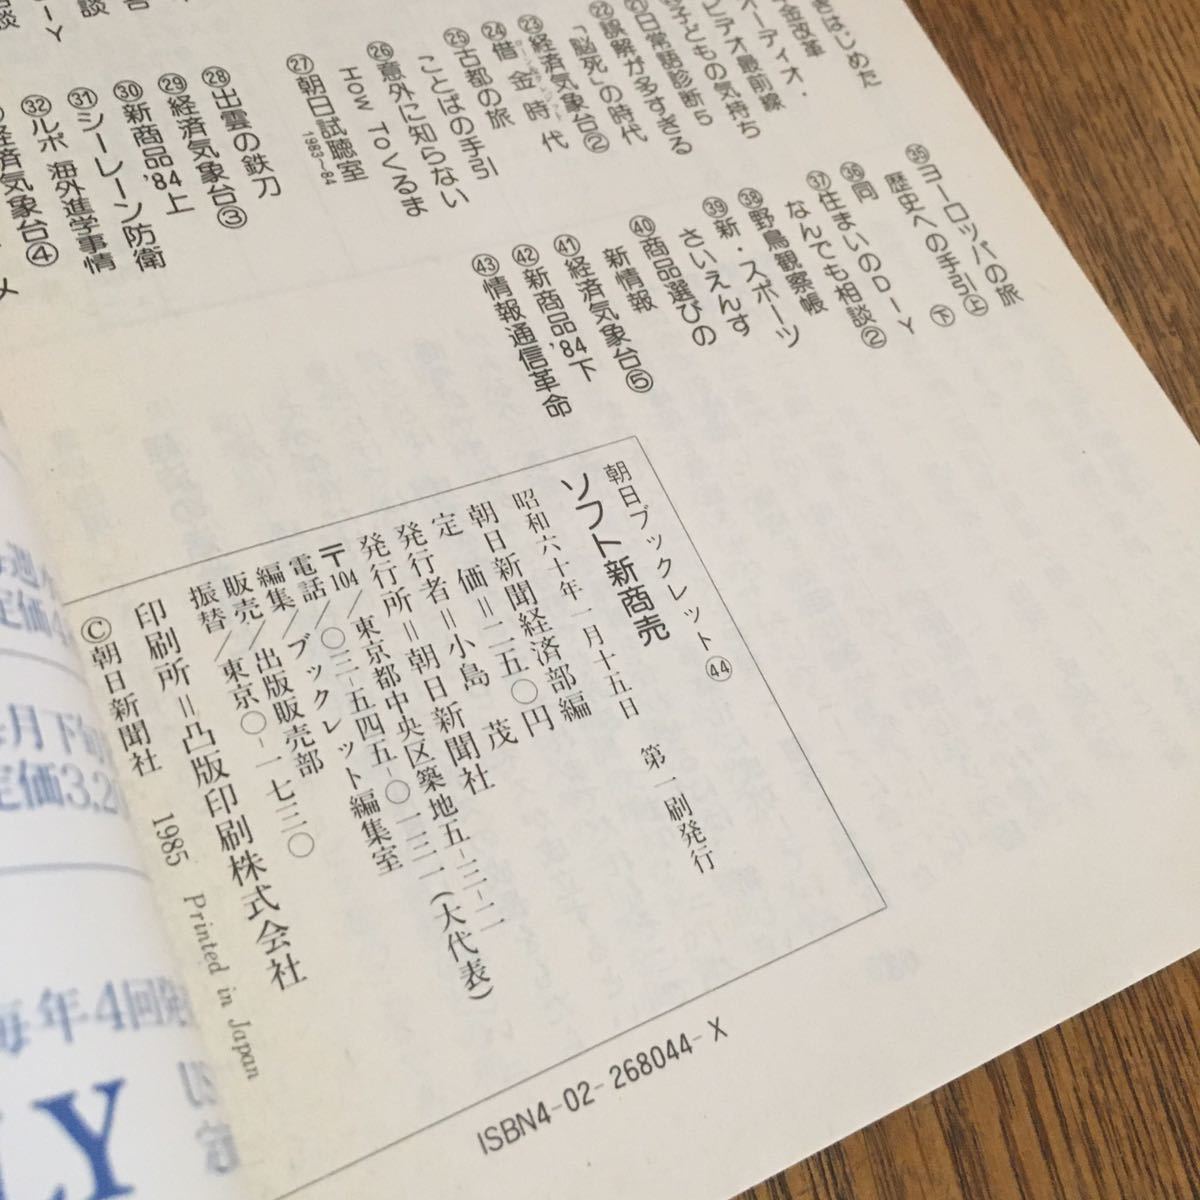 きはじめた
金改革
オーディオ・
ビデオ最前線
子どもの気持ち
㉑日常語診断5
㉒誤解が多すぎる
「脳死」の時代
㉓経済気象台②
㉔借金時代
㉕古都の旅
ことばの手引
㉖意外に知らない
HOW TOくるま
㉗朝日試聴室
1983-84
㉘出雲の鉄刀
㉙経済気象台③
㉚新商品'84上
㉛シーレーン防衛
㉜ルポ 海外進学事情
経済気象台④
㉟ヨーロッパの旅
歴史への手引㊤
㊱同 ㊦
㊲住まいのDIY
なんでも相談②
㊳野鳥観察帳
㊴新・スポーツ
さいえんす
㊵商品選びの
新情報
㊶経済気象台⑤
㊷新商品'84下
㊸情報通信革命
朝日ブックレット㊹
ソフト新商売
昭和六十年一月十五日 第一刷発行
朝日新聞経済部編
定 価=二五〇円
発行者=小島 茂
発行所=朝日新聞社
〒104/東京都中央区築地五-三-二
電話/〇三-五四五-〇一三一(大代表)
編集/ブックレット編集室
販売/出版販売部
振替/東京〇-一七三〇
印刷所=凸版印刷株式会社
©朝日新聞社 1985 Printed in Japan
ISBN4-02-268044-X
月下旬
定価3,2
毎年4回発
LY